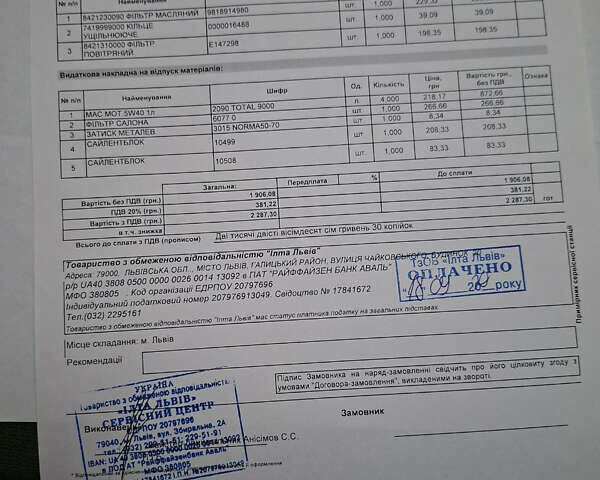 № п/п Найменування
1 8421230090 ФІЛЬТР МАСЛЯНИЙ 9818914980 шт. 1,000 229,33
2 7419999000 КІЛЬЦЕ УЩІЛЬНЮЮЧЕ 0000016488 шт. 1,000 39,09 39,09
3 8421310000 ФІЛЬТР ПОВІТРЯНИЙ E147298 шт. 1,000 198,35 198,35
Видаткова накладна на відпуск матеріалів:
№ п/п Найменування Шифр Од. Кількість Ціна, грн Вартість грн., без ПДВ Ознака
1 МАС МОТ 5W40 1л 2090 TOTAL 9000 л 4,000 218,17 872,66
2 ФІЛЬТР САЛОНА 6077 0 шт. 1,000 266,66 266,66
3 ЗАТИСК МЕТАЛЕВ. 3015 NORMA50-70 шт. 1,000 8,34 8,34
4 САЙЛЕНТБЛОК 10499 шт. 1,000 208,33 208,33
5 САЙЛЕНТБЛОК 10508 шт. 1,000 83,33 83,33
Загальна: Передплата % До сплати
Вартість без ПДВ (грн.) 1 906,08 1 906,08
ПДВ 20% (грн.) 381,22 381,22
Вартість з ПДВ (грн.) 2 287,30 2 287,30 гот
в т.ч. знижка
Всього до сплати з ПДВ (прописом) Дві тисячі двісті вісімдесят сім гривень 30 копійок
Товариство з обмеженою відповідальністю "Ілта Львів"
Адреса: 79000, ЛЬВІВСЬКА ОБЛ., МІСТО ЛЬВІВ, ГАЛИЦЬКИЙ РАЙОН, ВУЛИЦЯ ЧАЙКОВСЬКОГО, БУДИНОК
р/р UA40 3808 0500 0000 0026 0014 13092 в ПАТ "РАЙФФАЙЗЕН БАНК АВАЛЬ"
МФО 380805 Код організації ЕДРПОУ 20797696
Індивідуальний податковий номер 207976913049. Свідоцтво № 17841672
Тел.(032) 2295161
Товариство з обмеженою відповідальністю "Ілта Львів" має статус платника податку на загальних підставах
ТзОВ "Ілта Львів"
ОПЛАЧЕНО
20 року
Примірник сервісної станції
Місце складання: м. Львів
Рекомендації
Підпис Замовника на наряд-замовленні свідчить про його цілковиту згоду з
умовами "Договора-замовлення", викладеними на звороті.
УКРАЇНА
Товариство з обмеженою відповідальністю
«ІЛТА ЛЬВІВ»
СЕРВІСНИЙ ЦЕНТР
Виконавець
ЄДРПОУ 20797696
79040, м. Львів, вул. Збиральна, 2А
тел. (032) 229-51-61, 229-51-91
IBAN: UA 40 3808 0500 0000 0026 0014 13092
в ПОАТ «Райффайзенбанк Аваль»
МФО 380805
17841672 І.П.Н. 207976913049
Анісімов С.С.
Замовник
оформлення